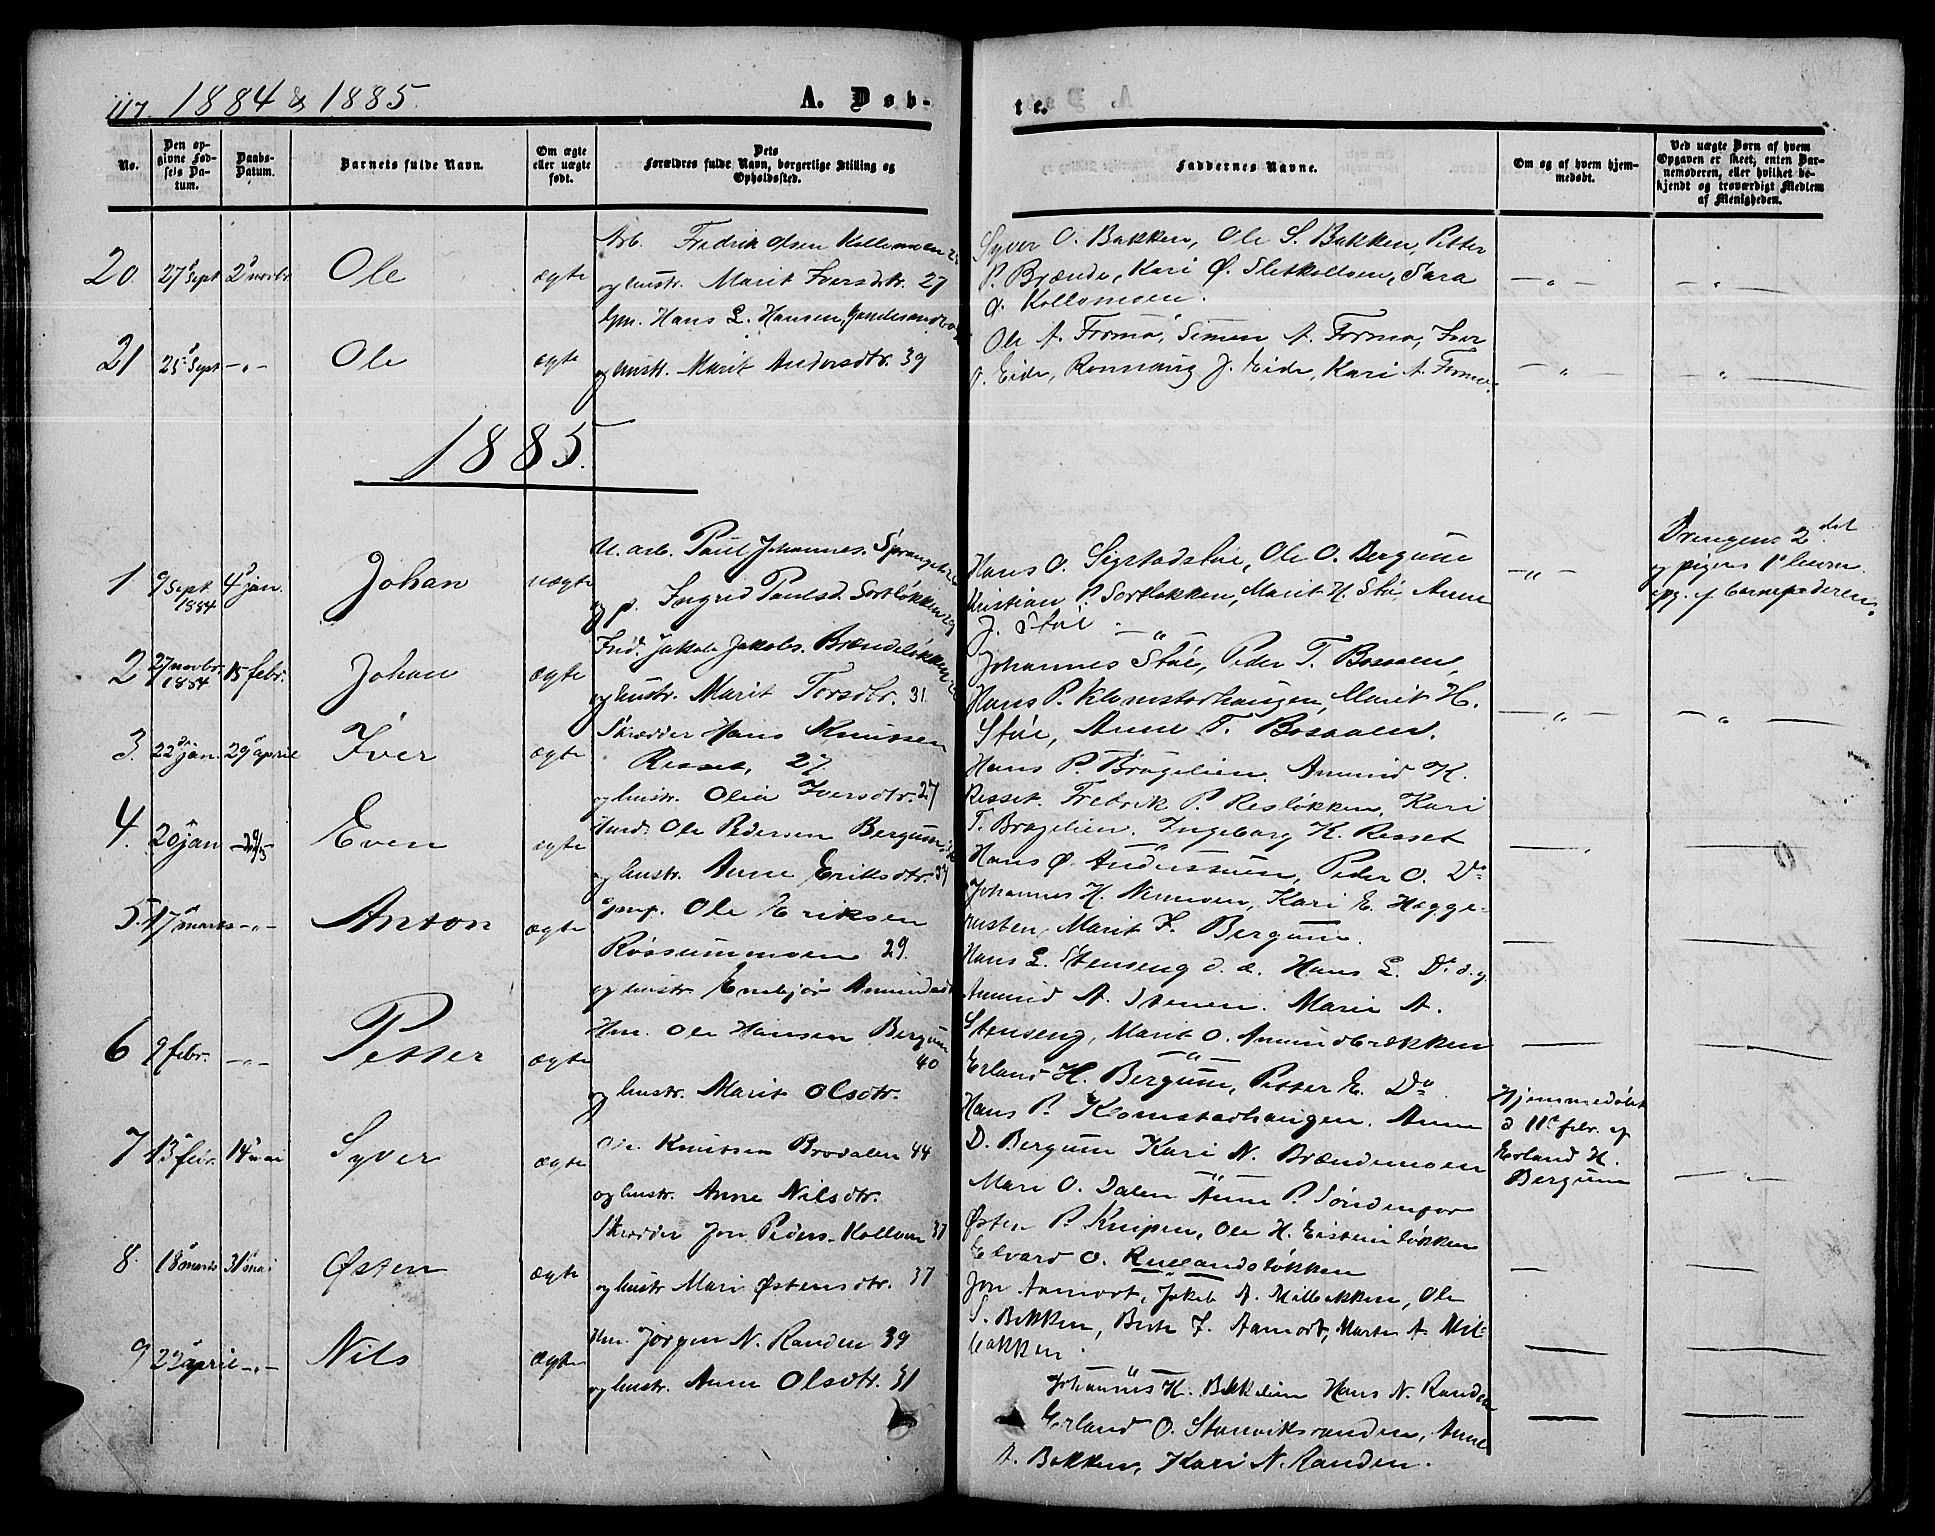 117. 1884 & 1885.
A. Døb-
te.
No.
Den op-
givne Fød-
sels Da-
tum.
Daabs-
Datum.
Barnets fulde Navn.
Om ægte
eller uægte
født.
Dets
Forældres fulde Navn, borgerlige Stilling og
Opholdssted.
Faddernes Navne.
Om og af hvem hjem-
medøbt.
Ved uægte Børn af hvem
Opgaven er skeet, enten Bar-
nemoderen, eller hvilket be-
kjendt og troværdigt Medlem
af Menigheden.
20. 27 Sept 2 novbr. Ole ægte
Arb. Fredrik Olsen Kollomoen
og hustr. Marit Iversdtr. 27
Syver O. Bakken, Ole S. Bakken, Petter
P. Brænde, Kari Ø. Sletkolloen, Sara
O. Kollomoen.
21 25 Sept -„- Ole ægte
Gm. Hans L. Hansen,
og hustr. Marit Andersdtr. 39
Ole A. Formo, Simen A. Formo, Iver
J. Eide, Rønnaug J. Eide, Kari A. Formo.
1885.
1 9 Sept 1884 4 jan. Johan uægte
U. arb. Paul Johannes.
og p. Ingrid Paulsd. Sortløkken 29
Hans O. Sigstadstøe, Ole O. Bergum
Kristian P. Sortløkken, Marit H. Støe, Anne
J. Støe.
Drengens 2det
og pigens 1ste leierm.
opg. af barnefaderen.
2 27 novbr. 1884 15 febr. Johan ægte
Ind. Jakob Jakobs. Brændeløkken
og hustr. Marit Torsdtr. 31
Johannes Støe, Peder T. Bossaen,
Hans P. Klomstadhaugen, Marit H.
Støe, Anne T. Bossaen.
3. 22 jan. 29 april Iver ægte
Skrædder Hans Knutsen
Resset, 27
og hustr. Olea Iversdtr. 27
Hans P. Bragelien. Amund K.
Resset. Fredrik P. Resløkken, Kari
T. Bragelien. Ingeborg K. Resset
4. 20 jan Even ægte
Husd. Ole Pedersen Bergum
og hustr. Anne Eriksdtr. 37
Hans Ø. Anderssuen, Peder O. Do
Johannes H. Nemoen, Kari E. Hegge-
rusten, Marit F. Bergum.
5. 17 marts -„- Anton ægte
Ole Eriksen
Røssummoen 29.
og hustr. Embjør
Hans L. Stenseng d. æ. Hans L. Do d. y.
Amund A. Stenen. Marie A.
Stenseng, Marit O. Amundbrækken
6 9 febr. -„- Petter ægte
Hm. Ole Hansen Bergum
40
og hustr. Marit Olsdtr.
Erland H. Bergum, Petter E. Do.
Hans P. Klomstadhaugen. Anne
D. Bergum Kari N. Brændemoen
Hjemmedøbt
d. 11 febr. af
Erland H.
Bergum
7 13 febr. 14 mai Syver ægte
Knutsen Brodalen 44
og hustr. Anne Nilsdtr.
Mari O. Dalen Anne P. Søndenfor
Østen P. Knipen, Ole H. Eisteinløkken
Edvard O. Rullandsløkken
8. 18 marts 31 mai Østen ægte
Skrædder Jon Peders. Kolloen 37
og hustr Mari Østensdtr. 37
Jon Aamodt, Jakob A. Milbakken, Ole
S. Bakken, Berte J. Aamodt, Marte A. Mil-
bakken.
9 23 april -„- Nils ægte
Hm. Jørgen N. Randen 39
og hustr. Anne Olsdtr. 31
Johannes H. Bekkelien Hans N. Randen
Erland O. Stamviksranden, Anne
A. Bakken, Kari N. Randen.